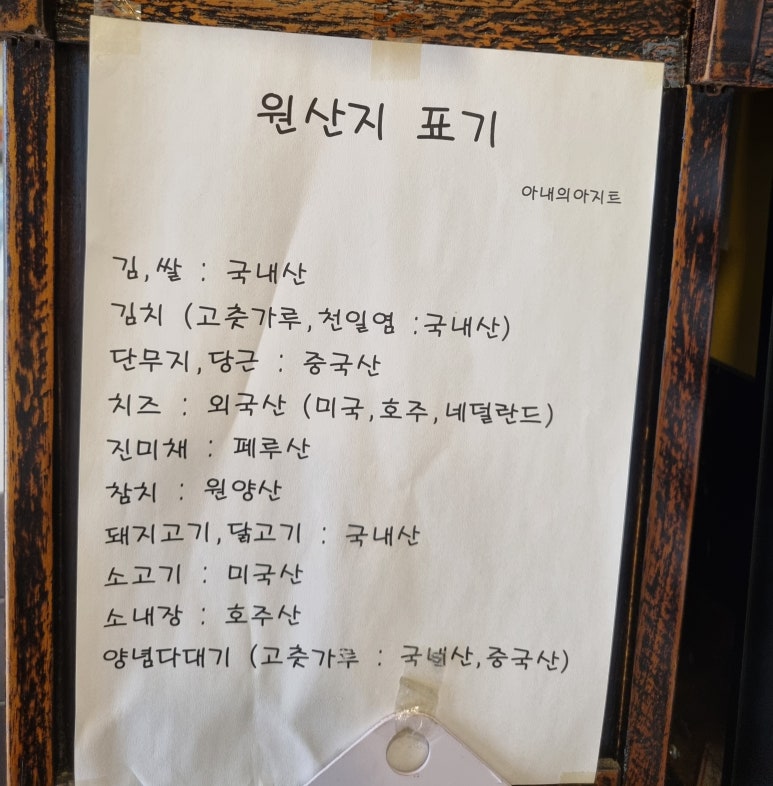 원산지 표기
아내의아지트
김,쌀 : 국내산
김치 (고춧가루,천일염 :국내산)
단무지,당근 : 중국산
치즈 : 외국산 (미국,호주,네덜란드)
진미채 : 페루산
참치 : 원양산
돼지고기,닭고기 : 국내산
소고기 : 미국산
소내장 : 호주산
양념다대기 (고춧가루 : 국내산,중국산)